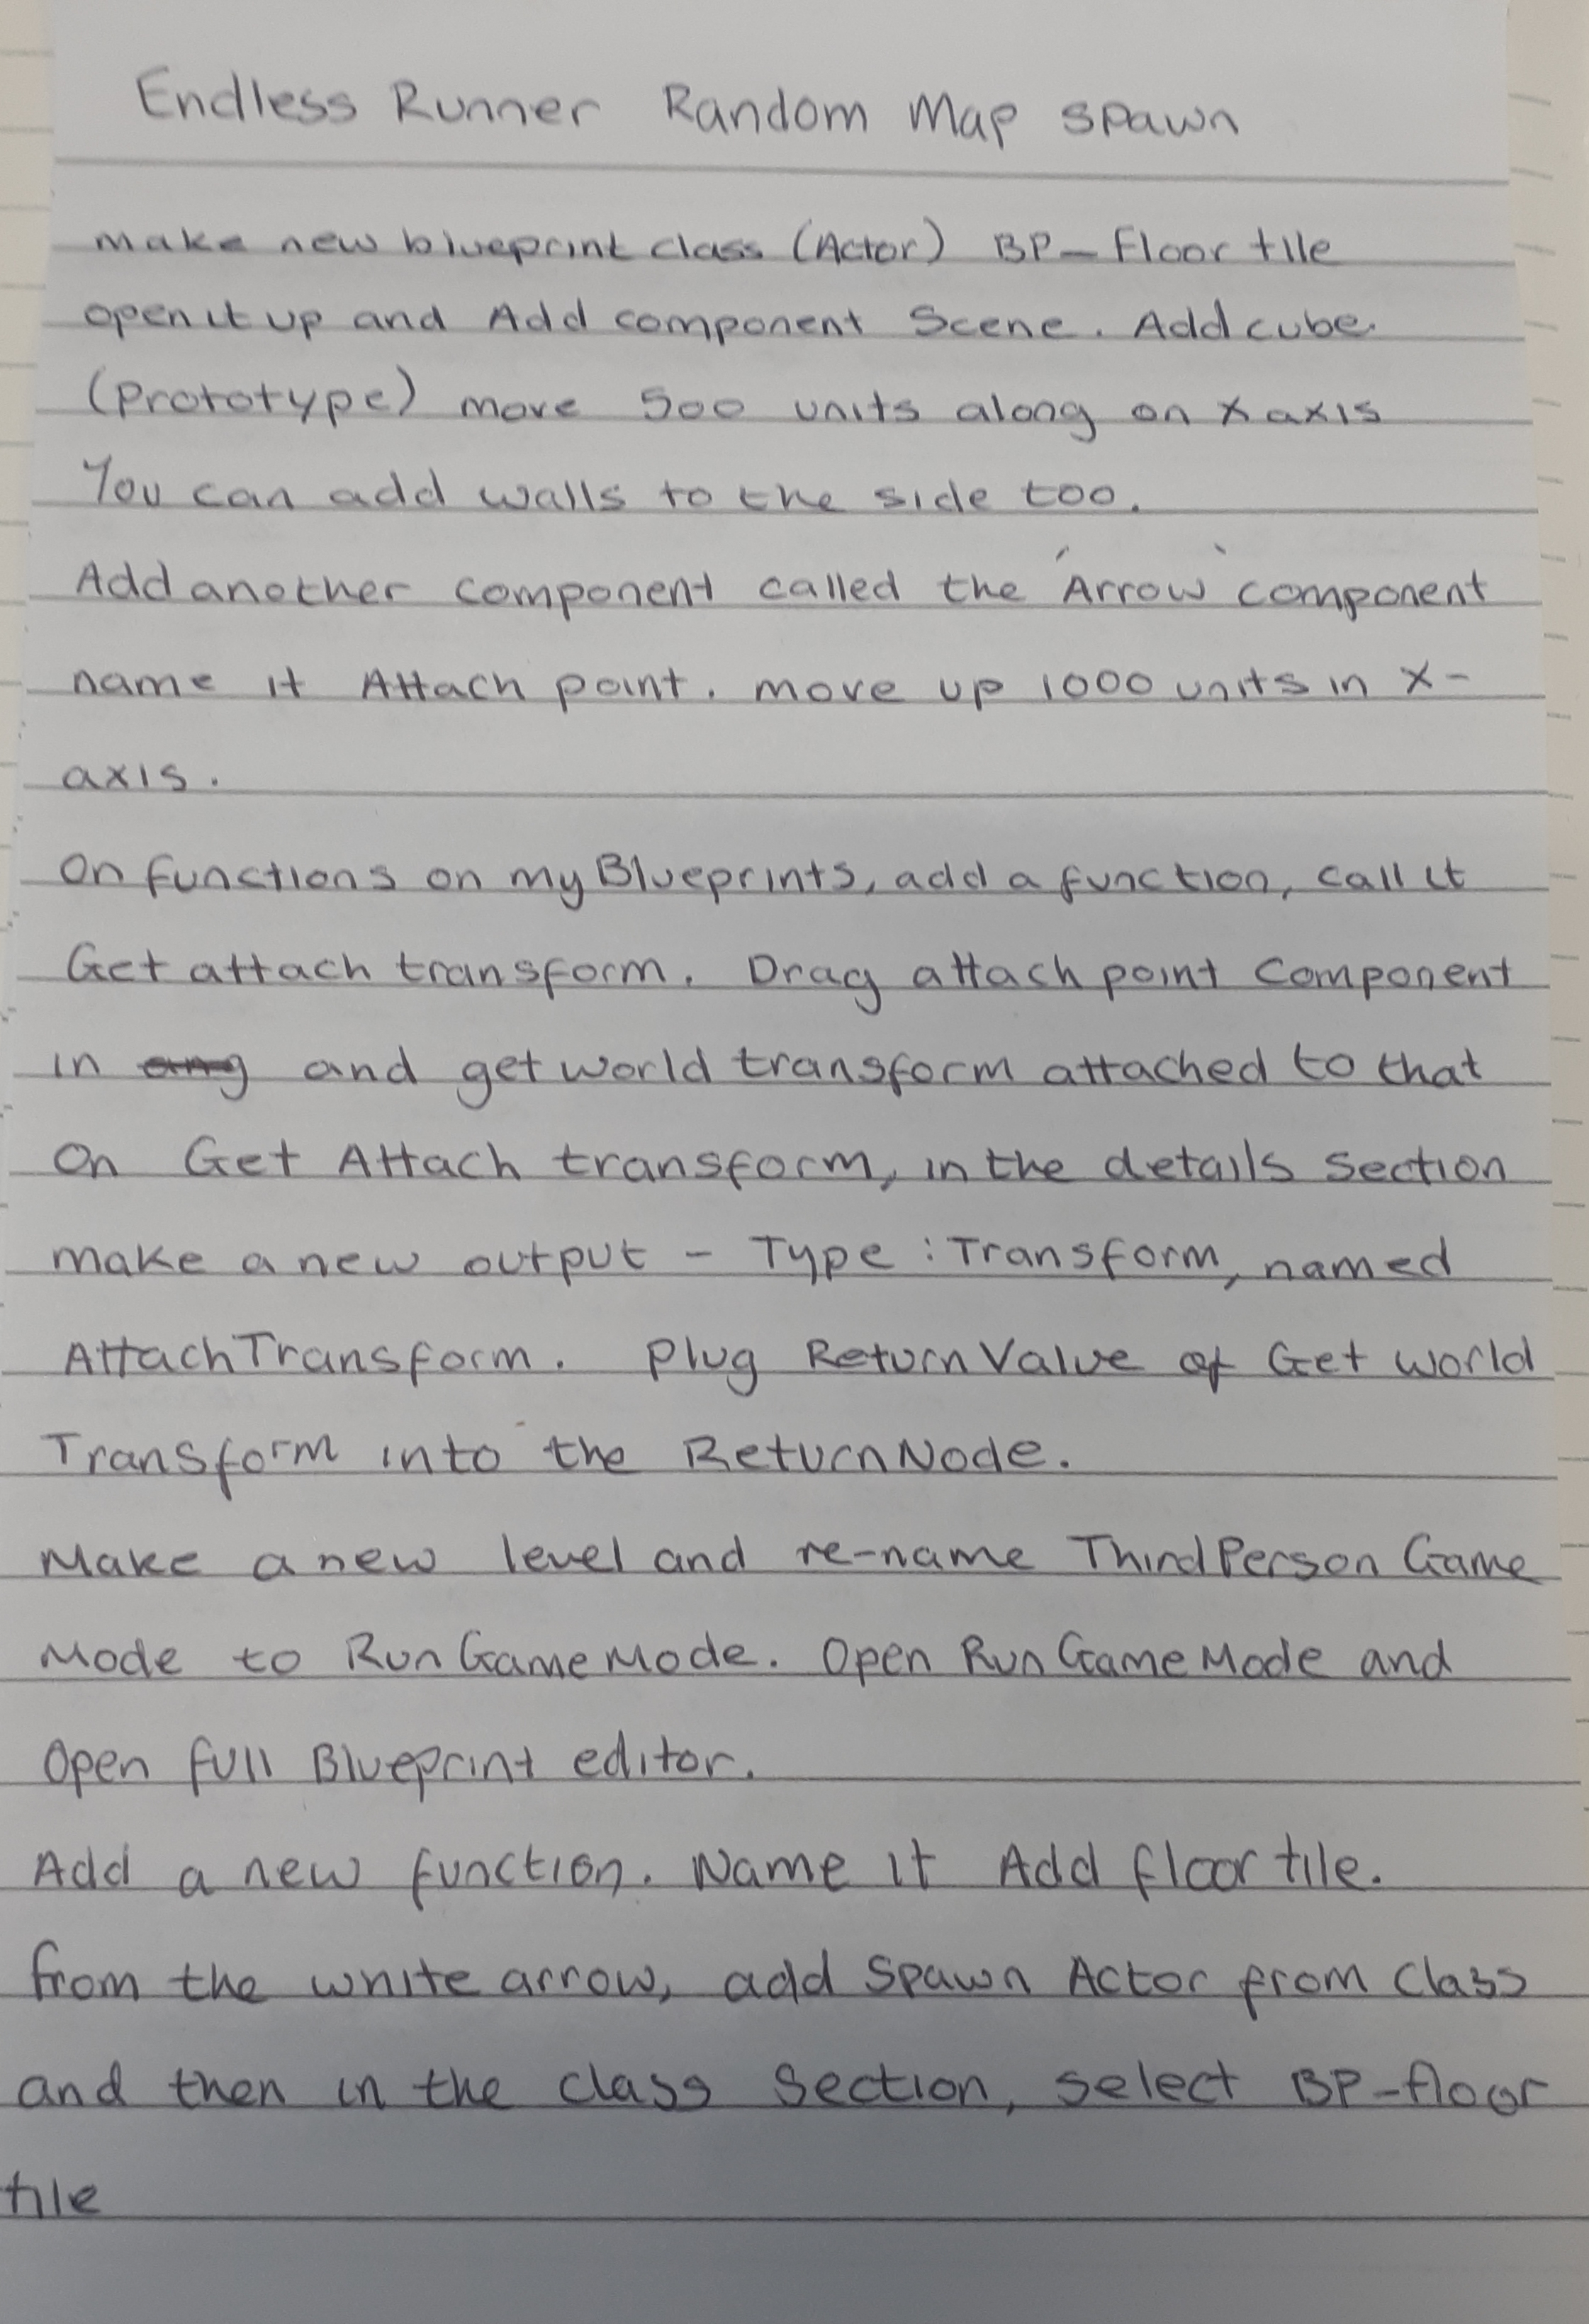 Endless Runner Random Map spawn
make new blueprint class (Actor) BP_floor tile
open it up and Add component Scene. Add cube.
(Prototype) move 500 units along on x axis
You can add walls to the side too.
Add another component called the 'Arrow' component
name it Attach point. move up 1000 units in x-
axis.
On functions on my Blueprints, add a function, call it
Get attach transform. Drag attach point component
in and get world transform attached to that
On Get Attach transform, in the details section
make a new output - Type : Transform, named
AttachTransform. Plug Return Value of Get world
Transform into the ReturnNode.
Make a new level and re-name ThirdPerson Game
Mode to RunGameMode. Open RunGameMode and
Open full Blueprint editor.
Add a new function. Name it Add floor tile.
from the white arrow, add Spawn Actor from Class
and then in the class section, select BP-floor
tile